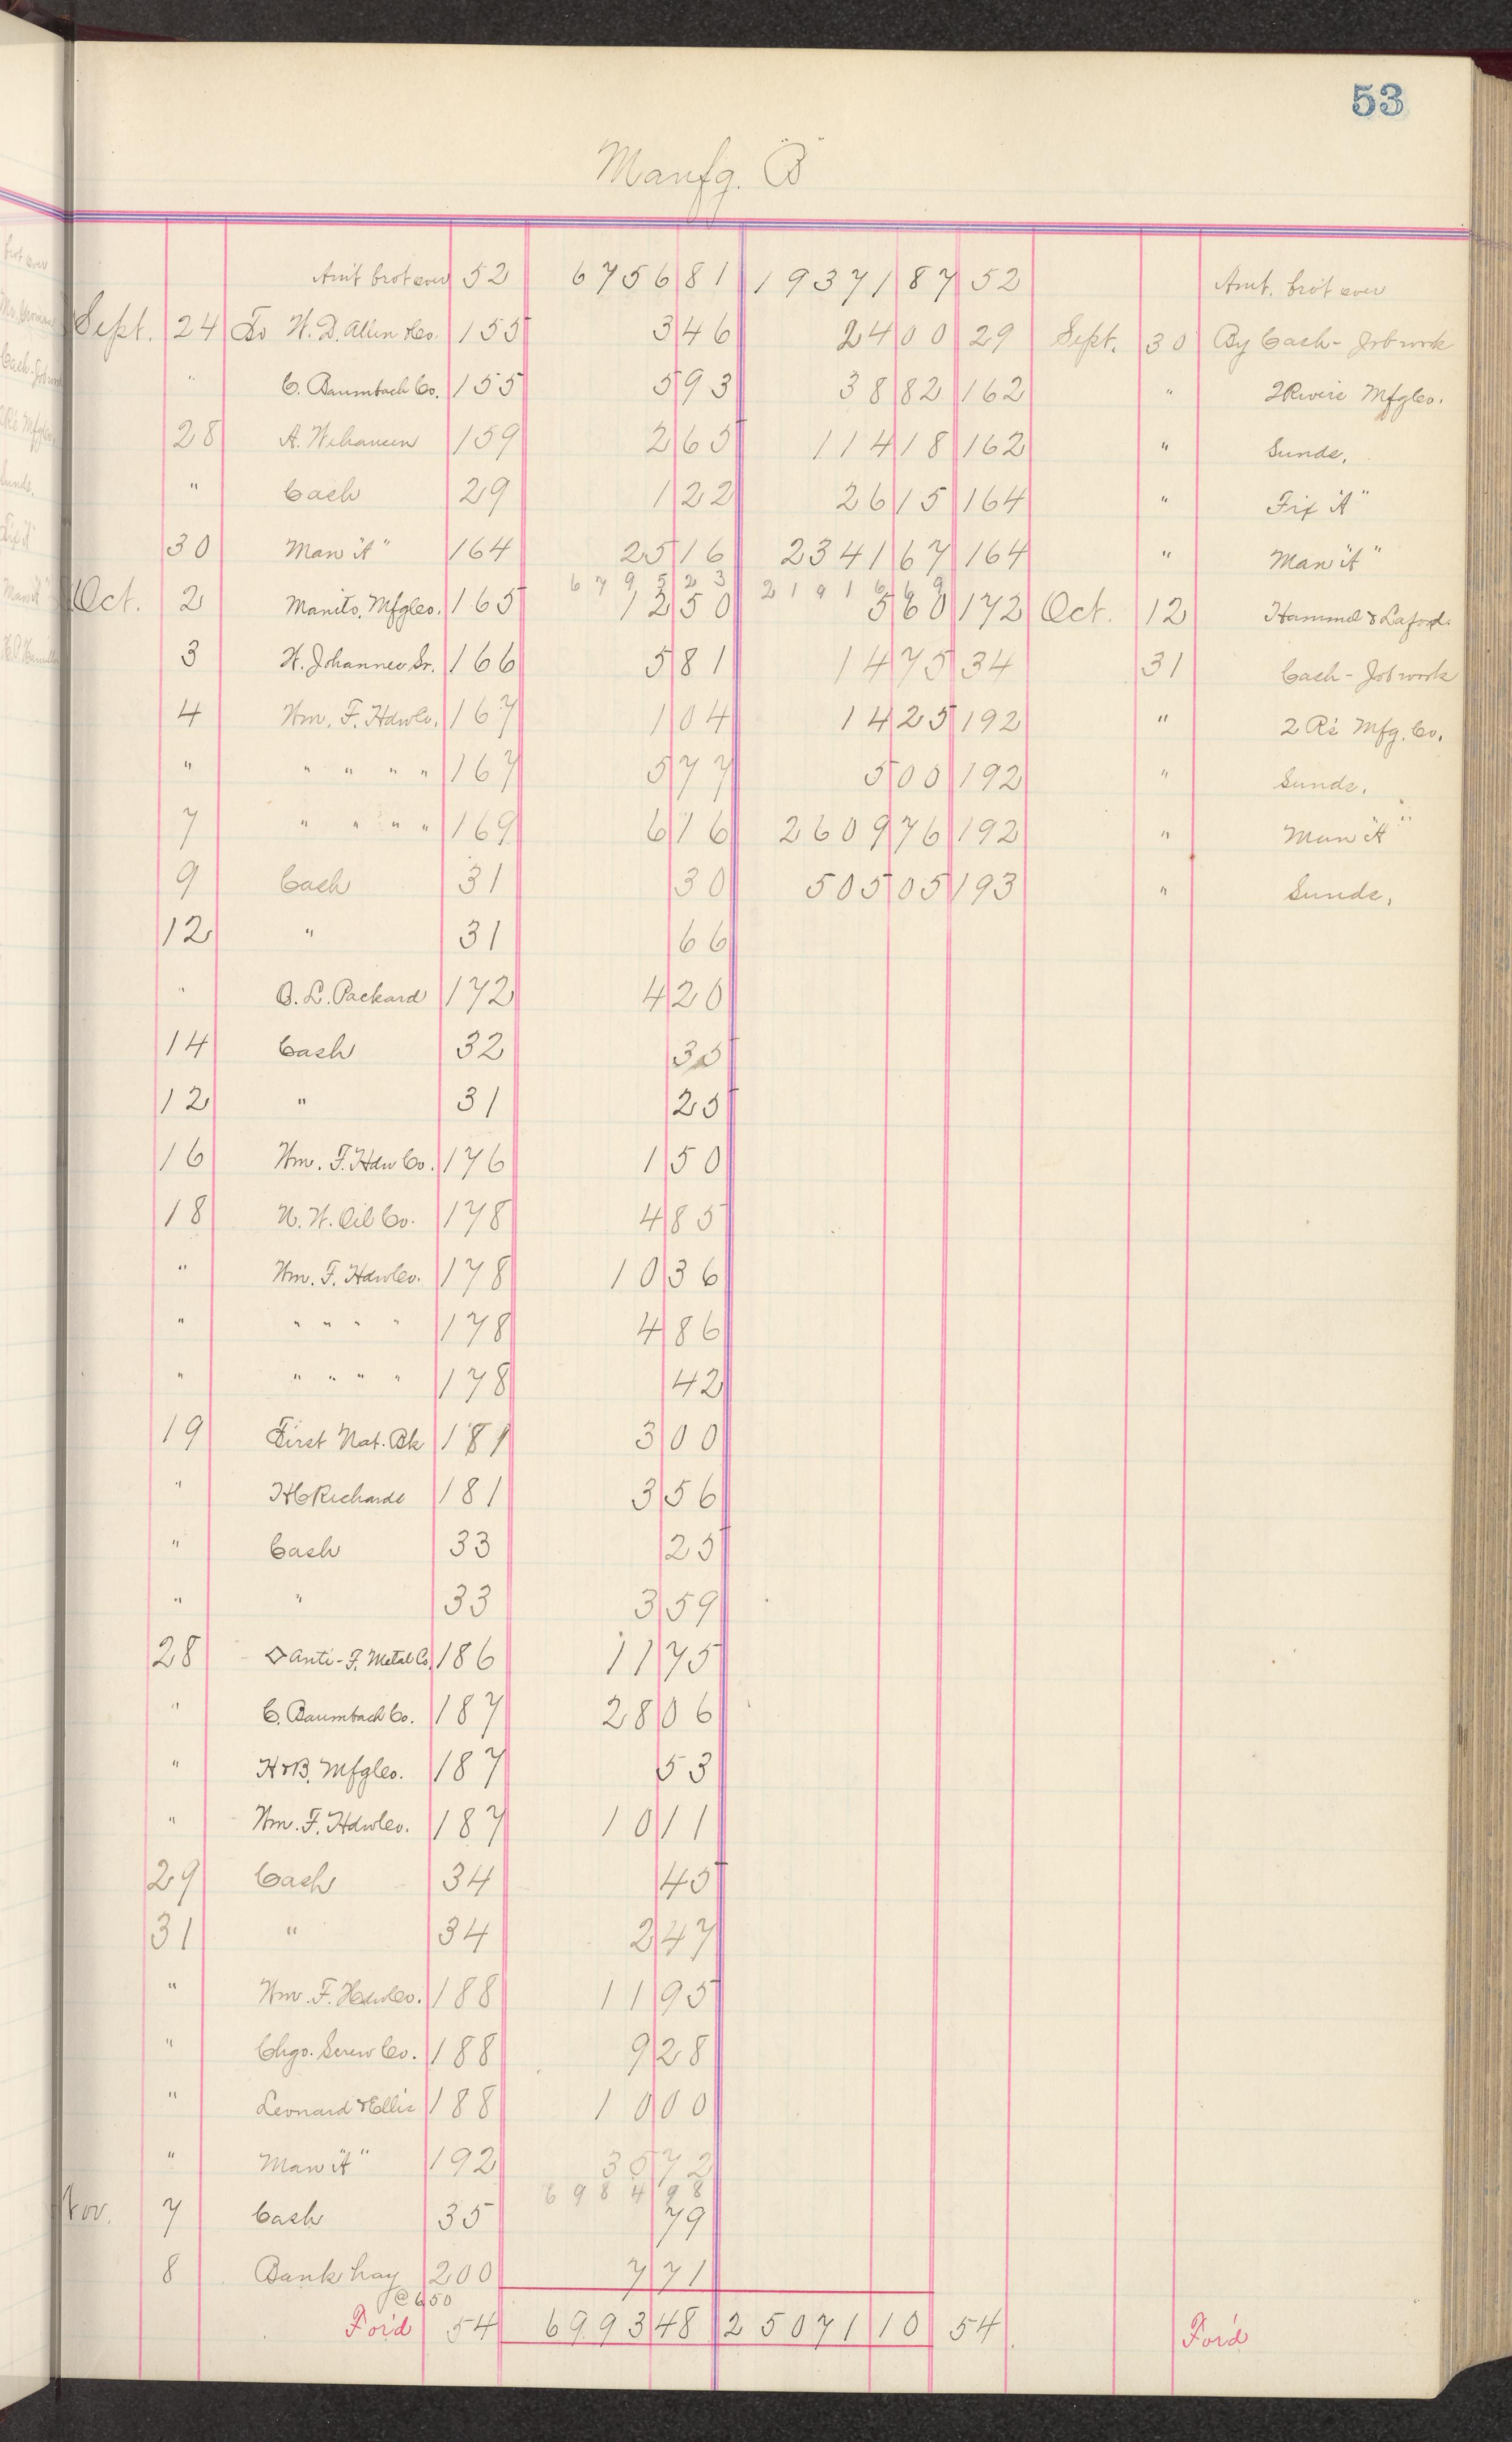 53
Manfg. "B"
Am't brot over 52 6756 81 19371 87 52 Amt. bro't over
Sept. 24 To W. D. Allen & Co. 155 3 46 24 00 29 Sept. 30 By Cash - Job work
" C. Baumbach Co. 155 5 93 38 82 162 " 2 Rivers Mfg Co.
28 A. 159 2 65 114 18 162 " Sunds.
" Cash 29 1 22 26 15 164 " Fix "A"
30 Man "A" 164 25 16 2341 67 164 " Man "A"
6795 23 21916 69
Oct. 2 Manito. Mfg Co. 165 12 50 5 60 172 Oct. 12 Hammel &
3 W. Johannes Sr. 166 5 81 14 75 34 31 Cash - Job work
4 Wm. F. Hdw Co. 167 1 04 14 25 192 " 2 R's Mfg. Co.
" " " " " 167 5 77 5 00 192 " Sunds.
7 " " " " 169 6 16 2609 76 192 " Man "A"
9 Cash 31 30 505 05 193 " Sunds.
12 " 31 66
" O. L. Packard 172 4 20
14 Cash 32 35
12 " 31 25
16 Wm. F. Hdw Co. 176 1 50
18 N. W. Oil Co. 178 4 85
" Wm. F. Hdw Co. 178 10 36
" " " " " 178 4 86
" " " " " 178 42
19 First Nat. Bk 181 3 00
" H C Richards 181 3 56
" Cash 33 25
" " 33 3 59
28 Anti-F. Metal Co. 186 11 75
" C. Baumbach Co. 187 28 06
" H & B. Mfg Co. 187 53
" Wm. F. Hdw Co. 187 10 11
29 Cash 34 45
31 " 34 2 47
" Wm. F. Hdw Co. 188 11 95
" Chgo. Screw Co. 188 9 28
" Leonard & Ellis 188 10 00
" Man "A" 192 35 72
6984 98
Nov. 7 Cash 35 79
8 Bank hay 200 7 71
@ 6 50
For'd 54 6993 48 25071 10 54 For'd